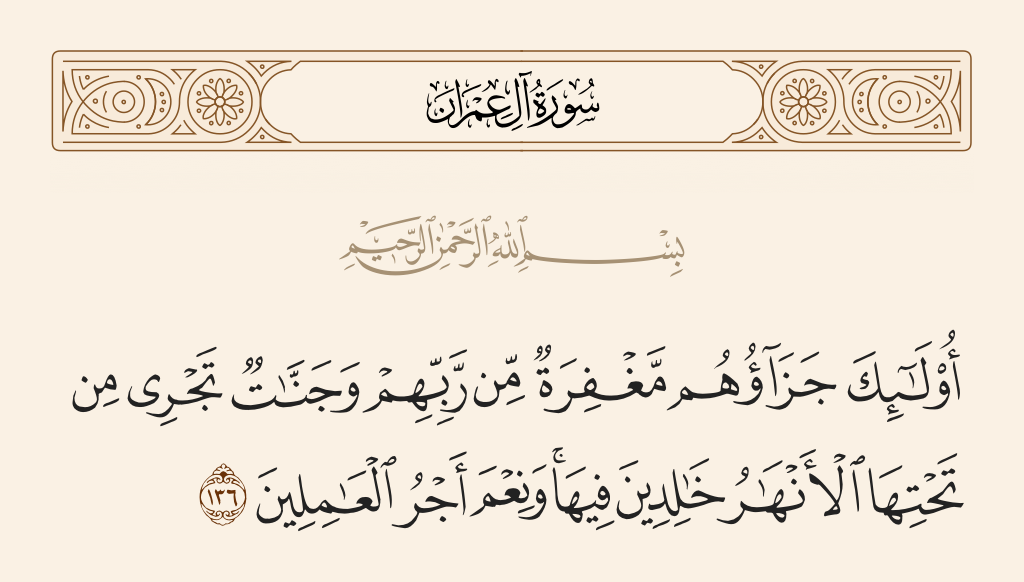 سُورَةُ آلِ عِمْرَان
بِسْمِ ٱللَّهِ ٱلرَّحْمَٰنِ ٱلرَّحِيمِ
أُو۟لَـٰٓئِكَ جَزَآؤُهُم مَّغْفِرَةٌ مِّن رَّبِّهِمْ وَجَنَّـٰتٌ تَجْرِى مِن
تَحْتِهَا ٱلْأَنْهَـٰرُ خَـٰلِدِينَ فِيهَا ۚ وَنِعْمَ أَجْرُ ٱلْعَـٰمِلِينَ ١٣٦